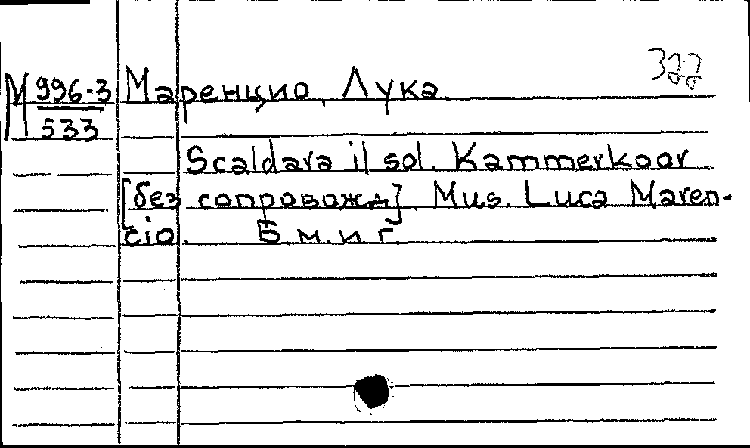 322
М 996-3
533
Маренцио, Лука
Scaldara il sol. Kammerkoor
[без сопровожд]. Mus. Luca Maren-
cio. Б.м. и г.